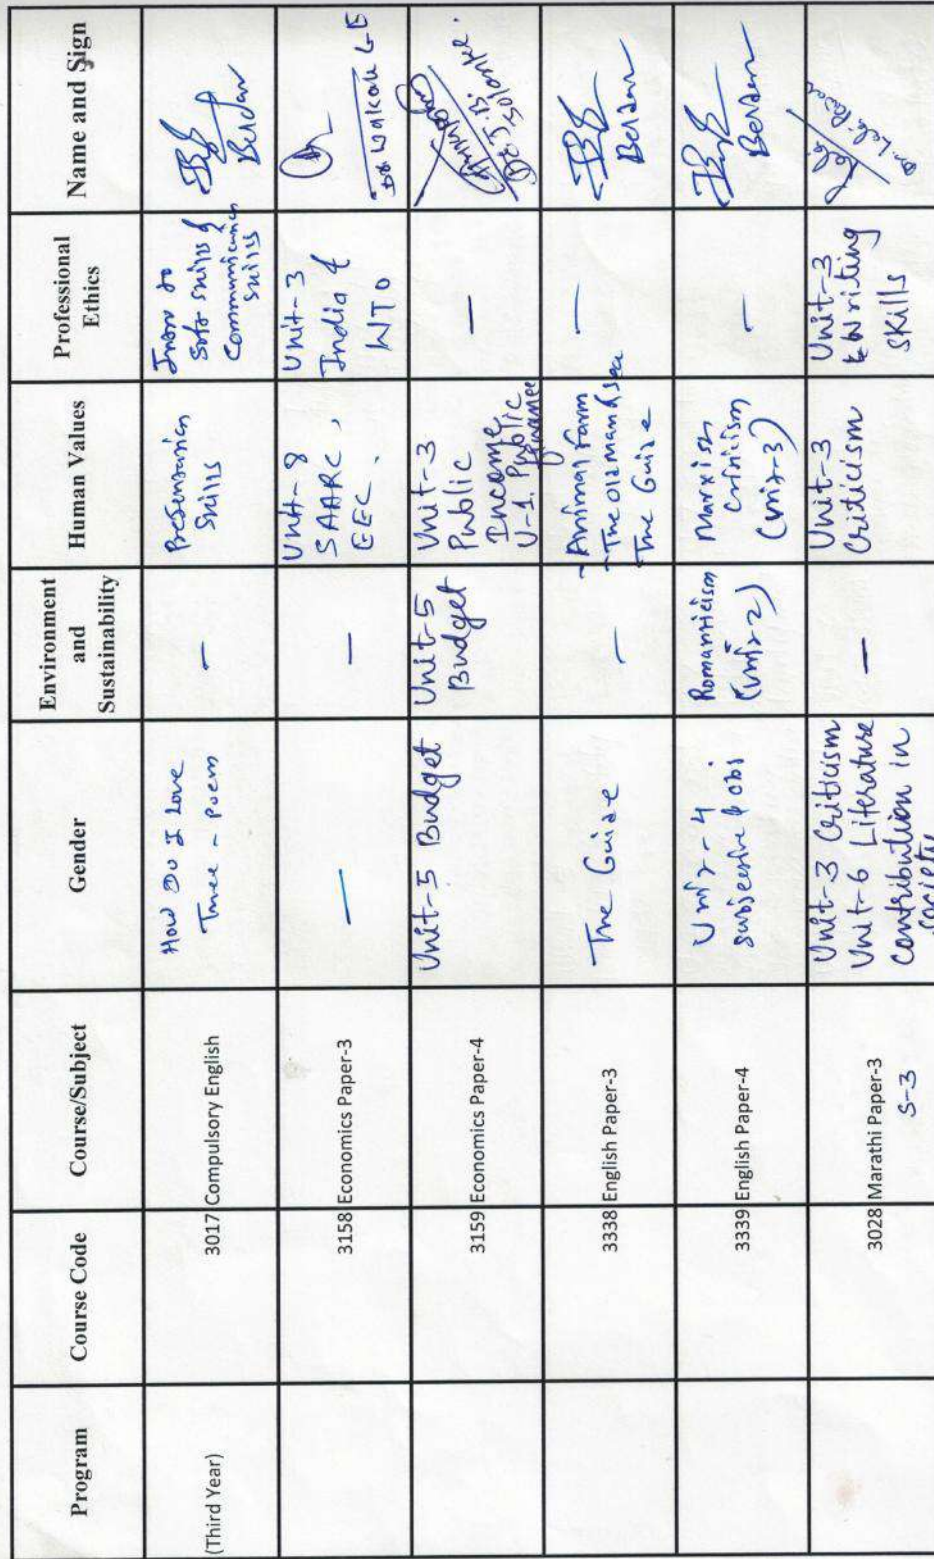 Program
Course Code
Course/Subject
Gender
Environment
and
Sustainability
Human Values
Professional
Ethics
Name and Sign
(Third Year)
3017
Compulsory English
How Do I Love
Thee - poem
—
Presentation
skills
soft skills &
communication
skills
3158
Economics Paper-3
—
—
Unit-8
SAARC,
EEC.
Unit-3
India &
WTO
3159
Economics Paper-4
Unit-5 Budget
Unit-5
Budget
Unit-3
Public
Income
U-1. Public
finance
—
3338
English Paper-3
The Guide
—
- Animal Farm
- The old man & sea
The Guide
—
3339
English Paper-4
Unit-4
subjective & obj
Romanticism
(unit 2)
Marxist
criticism
(unit-3)
—
3028
Marathi Paper-3
S-3
Unit-3 Criticism
Unit-6 Literature
Contribution in
society
—
Unit-3
Criticism
Unit-3
Writing
skills